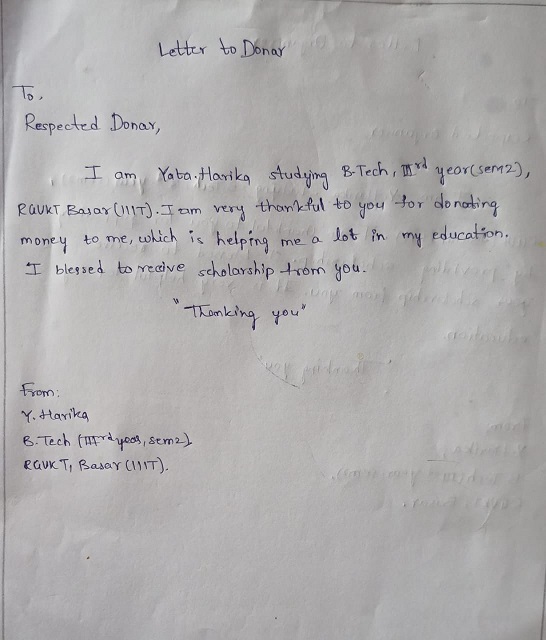 Letter to Donar
To,
Respected Donar,
I am Yata.Harika studying B.Tech, IIIrd year(sem2),
RGUKT, Basar (IIIT). I am very thankful to you for donating
money to me, which is helping me a lot in my education.
I blessed to receive scholarship from you.
"Thanking you"
From:
Y. Harika
B.Tech (IIIrd year, sem2)
RGUKT, Basar (IIIT).